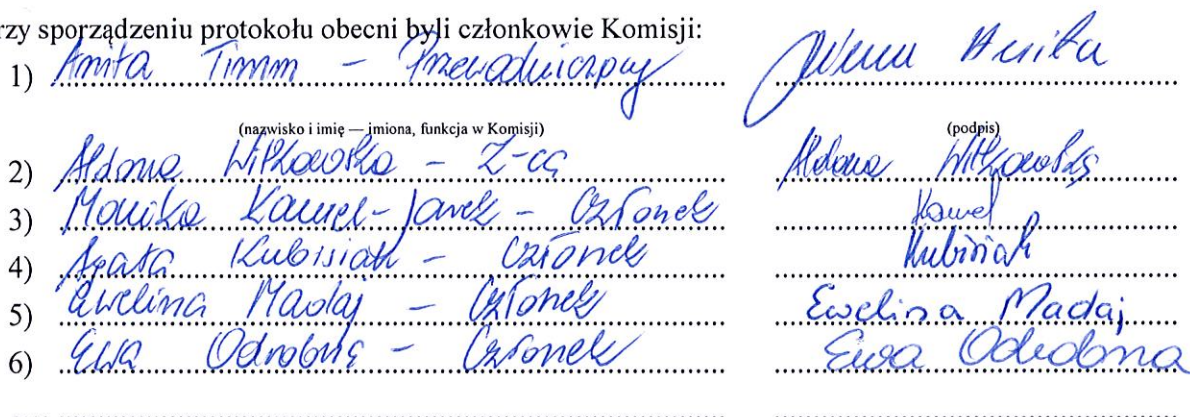 rzy sporządzeniu protokołu obecni byli członkowie Komisji:
1) Anita Timm - Przewodniczący Anita
(nazwisko i imię — imiona, funkcja w Komisji) (podpis)
2) Aldona Witkowska - Z-ca Aldona Witkowska
3) Monika - Członek
4) Agata Kubisiak - Członek Kubisiak
5) Ewelina Madaj - Członek Ewelina Madaj
6) Ewa Odrobna - Członek Ewa Odrobna